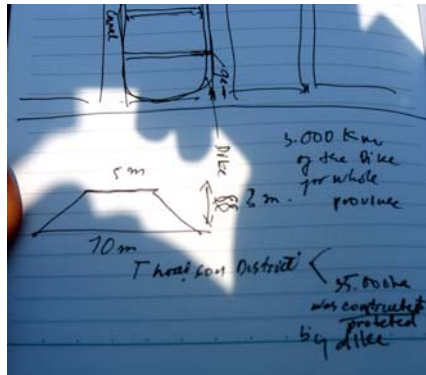 Canal
Dike
5 m
3 m.
10 m
3.000 Km
of the Dike
for whole
province
Thoai Son District
35.000 ha
was constructed
protected
by dike